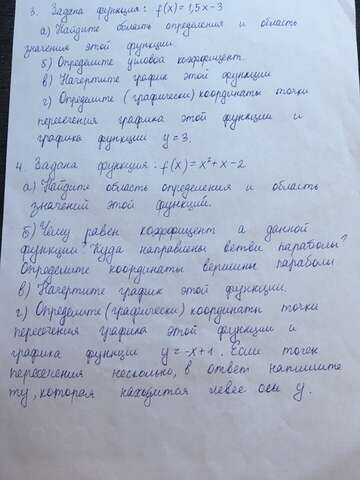 3. Задана функция: f(x)=1,5x-3
а) Найдите область определения и область
значения этой функции.
б) Определите угловой коэффициент.
в) Начертите график этой функции
г) Определите (графически) координаты точки
пересечения графика этой функции и
графика функции y=3.
4. Задана функция: f(x)=x²+x-2
а) Найдите область определения и область
значений этой функций.
б) Чему равен коэффициент а данной
функции? Куда направлены ветви параболы?
Определите координаты вершины параболы
в) Начертите график этой функции.
г) Определите (графически) координаты точки
пересечения графика этой функции и
графика функции y=-x+1. Если точек
пересечения несколько, в ответ напишите
ту, которая находится левее оси y.